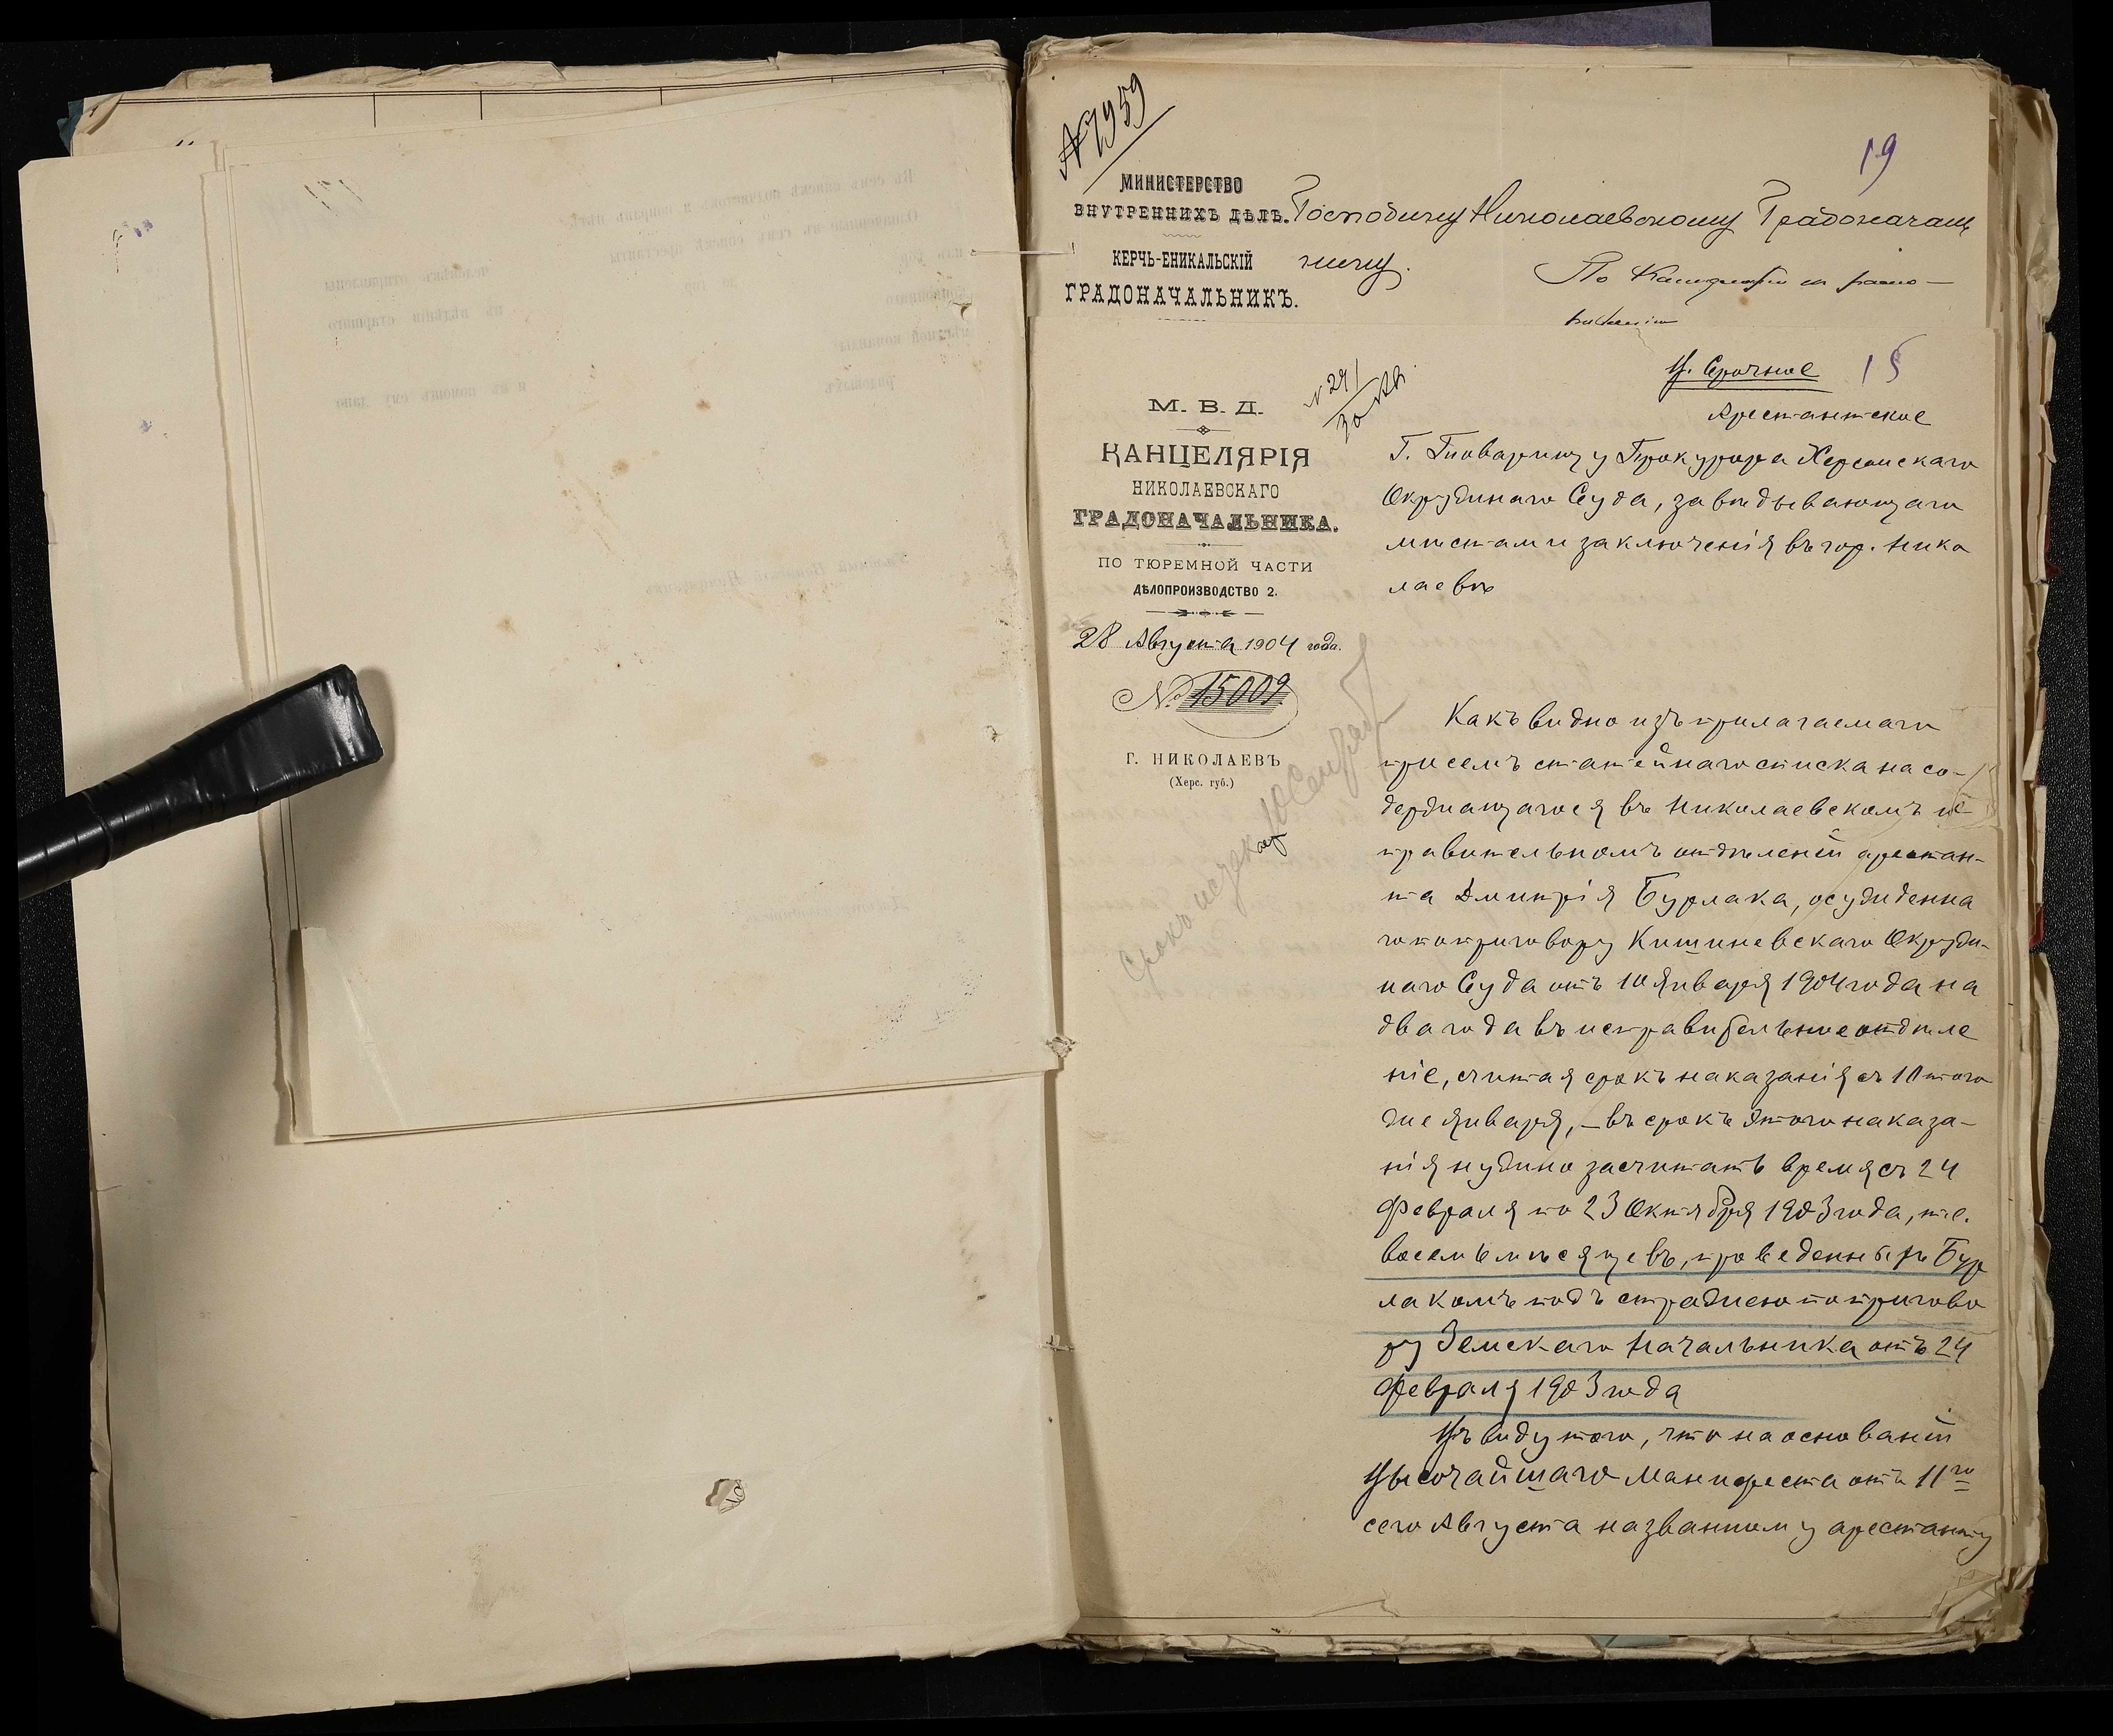 № 7959
19
МИНИСТЕРСТВО
ВНУТРЕННИХЪ ДѢЛЪ.
КЕРЧЬ-ЕНИКАЛЬСКІЙ
ГРАДОНАЧАЛЬНИКЪ.
Господину Николаевскому Градоначаль
нику.
По
М. В. Д.
КАНЦЕЛЯРІЯ
НИКОЛАЕВСКАГО
ГРАДОНАЧАЛЬНИКА.
ПО ТЮРЕМНОЙ ЧАСТИ
ДѢЛОПРОИЗВОДСТВО 2.
28 Августа 1904 года.
№ 15009
Г. НИКОЛАЕВЪ
(Херс. губ.)
В. Срочное
15
Арестантское
Г. Товарищу Прокурора Херсонскаго
Окружнаго Суда, завѣдывающаго
мѣстами заключенія въ гор. Нико
лаевѣ
Какъ видно изъ прилагаемаго
при семъ статейнаго списка на со-
держащагося въ Николаевскомъ ис
правительномъ отдѣленіи арестан-
та Дмитрія Бурлака, осужденна
го по приговору Кишиневскаго Окруж-
наго Суда отъ 10 Января 1904 года на
два года въ исправительное отдѣле
ніе, считая срокъ наказанія съ 10 того
же Января, – въ срокъ этого наказа-
нія нужно засчитать время съ 24
Февраля по 23 Октября 1903 года, т.е.
восемь мѣсяцевъ, проведенныхъ Бур
лакомъ подъ стражею по пригово
ру Земскаго Начальника отъ 24
Февраля 1903 года
Въ виду того, что на основаніи
Высочайшаго Манифеста отъ 11го
сего Августа названному арестанту